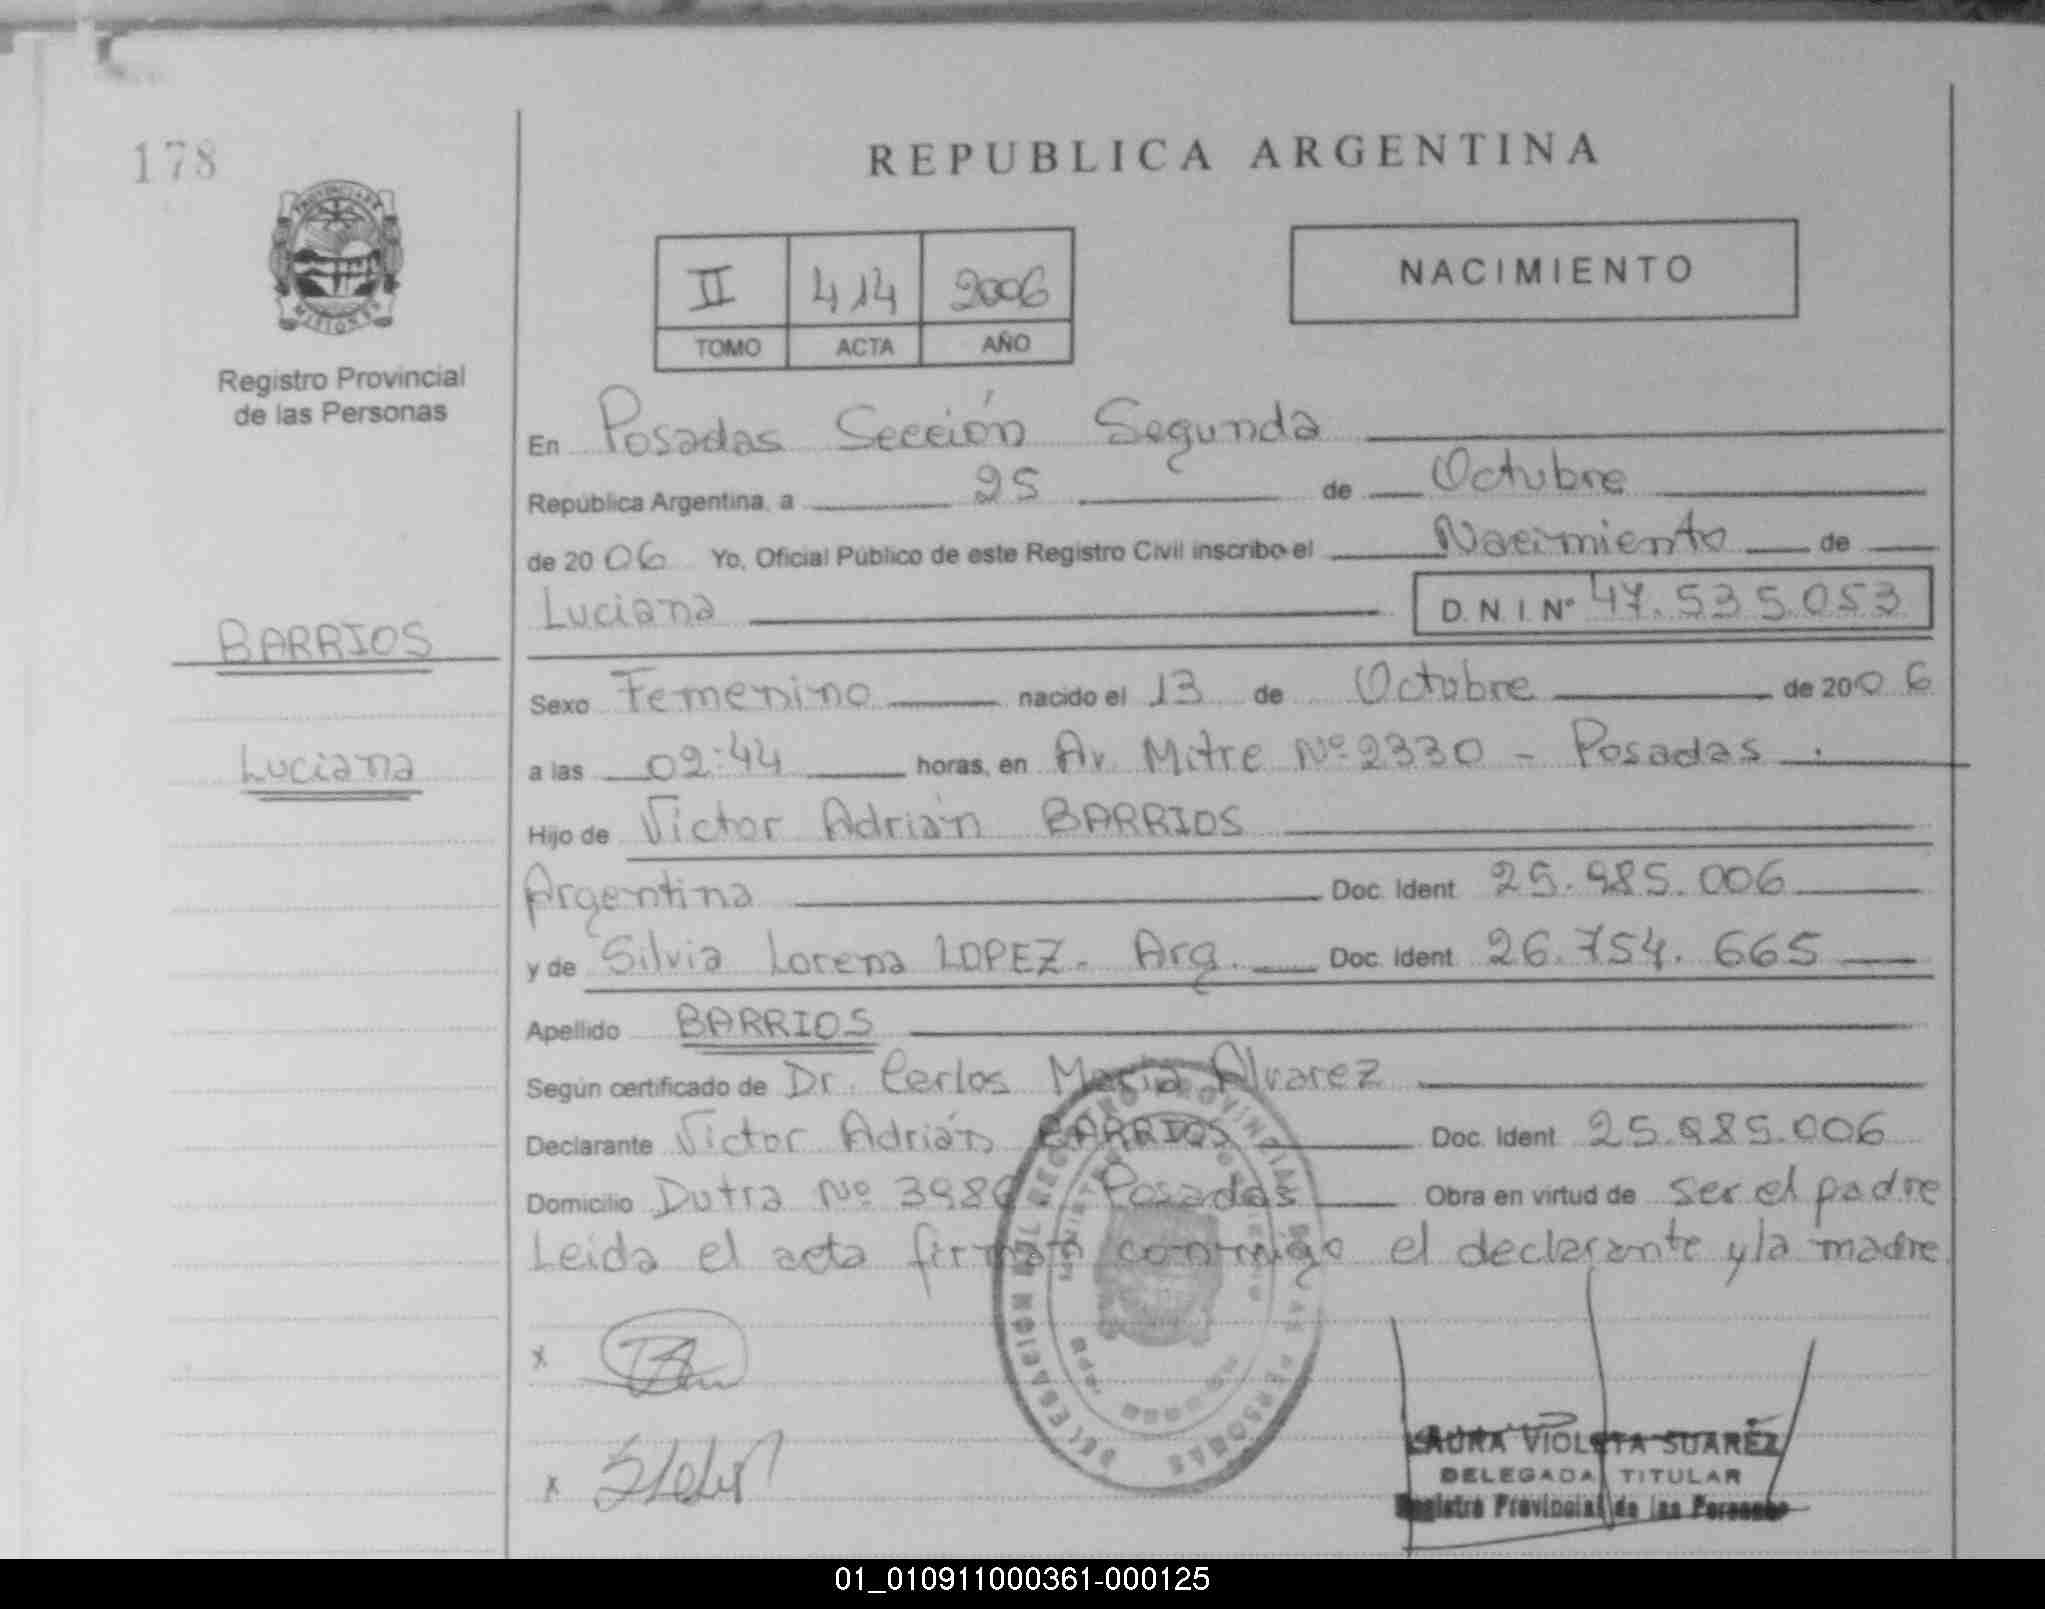 178
REPUBLICA ARGENTINA
PROVINCIA DE
MISIONES
Registro Provincial
de las Personas
II 414 2006
TOMO ACTA AÑO
NACIMIENTO
En Posadas Sección Segunda
República Argentina, a 25 de Octubre
de 2006 Yo, Oficial Público de este Registro Civil inscribo el Nacimiento de
Luciana D.N.I. Nº 47.535.053
BARRIOS
Luciana
Sexo Femenino nacido el 13 de Octubre de 2006
a las 02:44 horas, en Av. Mitre Nº 2330 - Posadas.
Hijo de Victor Adrián BARRIOS
Argentina Doc. Ident. 25.985.006
y de Silvia Lorena LOPEZ. Arg. Doc. Ident. 26.754.665
Apellido BARRIOS
Según certificado de Dr. Carlos Maria Alvarez
Declarante Victor Adrián BARRIOS Doc. Ident. 25.985.006
Domicilio Dutra Nº Posadas Obra en virtud de ser el padre
Leida el acta firman conmigo el declarante y la madre
x
x
DELEGACION DEL REGISTRO PROVINCIAL DE LAS PERSONAS
LAURA VIOLETA SUAREZ
DELEGADA TITULAR
Registro Provincial de las Personas
01_010911000361-000125